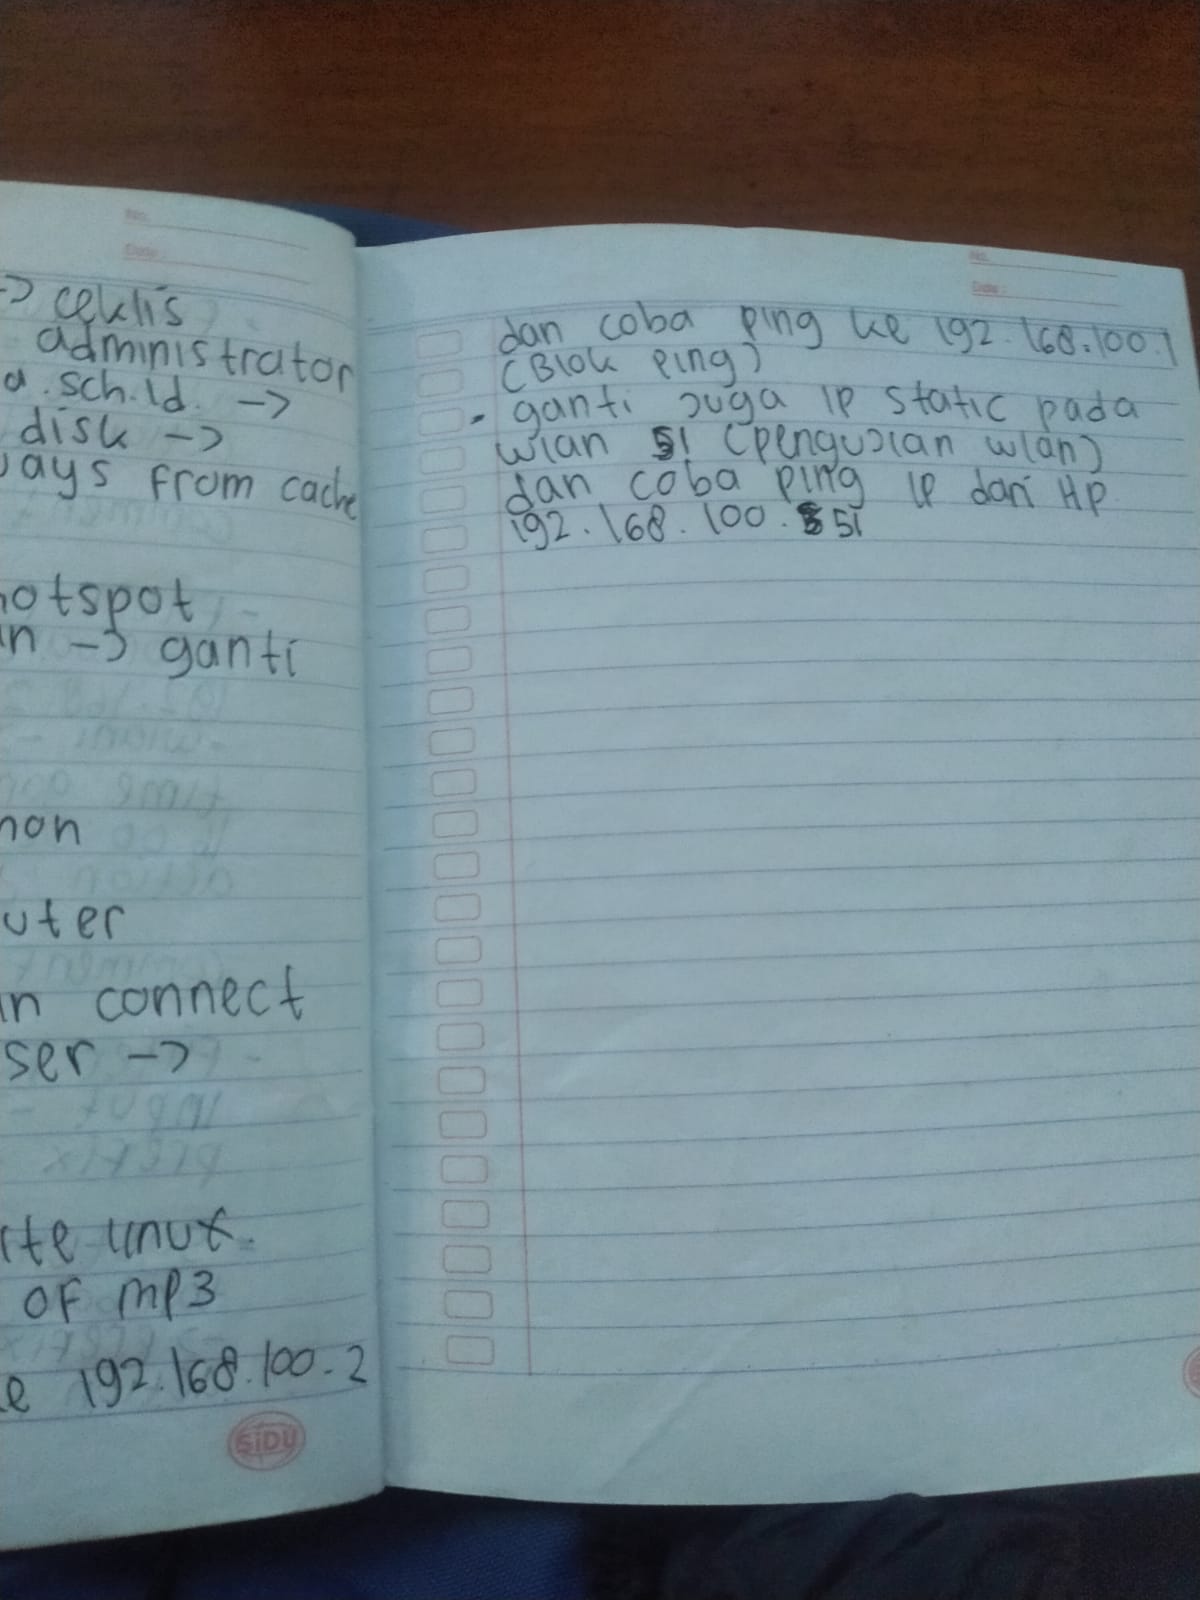 No.
Date :
-> ceklis
administrator
a. sch.ld. ->
disk ->
ways from cache
hotspot
in -> ganti
non
uter
in connect
ser ->
ite linux.
of mp3
ke 192.168.100.2
SIDU
No.
Date :
dan coba ping ke 192.168.100.1
(Blok ping)
- ganti juga ip static pada
wlan 51 (pengujian wlan)
dan coba ping ip dari HP
192.168.100.51